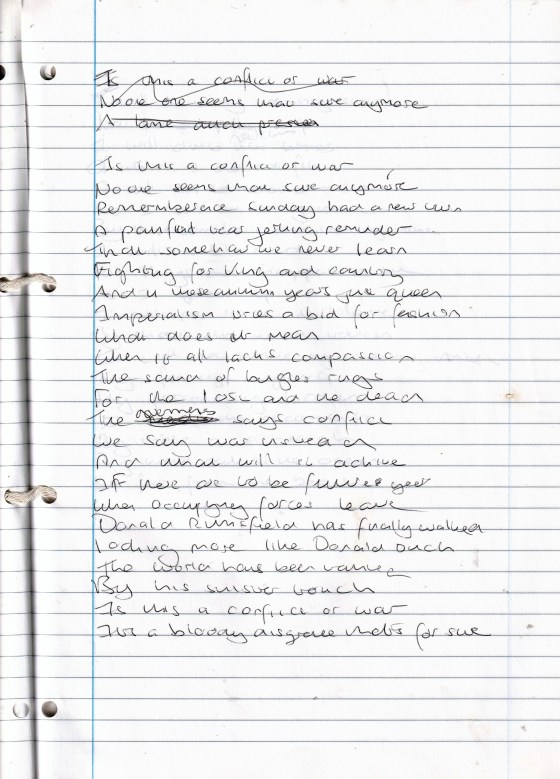 Is this a conflict or war
No one one seems that sure anymore
A lame duck
Is this a conflict or war
No one seems that sure anymore
Rememberence Sunday had a new turn
A painful tear jerking reminder
That somehow we never learn
Fighting for King and country
And in these autumn years just queen
Imperialism tries a bid for fashion
What does it mean
When it all lacks compassion
The sound of bugles rings
For the lost and the dead
The says conflict
We say war instead
And what will it achive
If there are to be further
When occupying forces leave
Donald Rumsfield has finally walked
Looking more like Donald Duck
The world has been
By his sinister touch
Is this a conflict or war
Its a bloody disgrace thats for sure